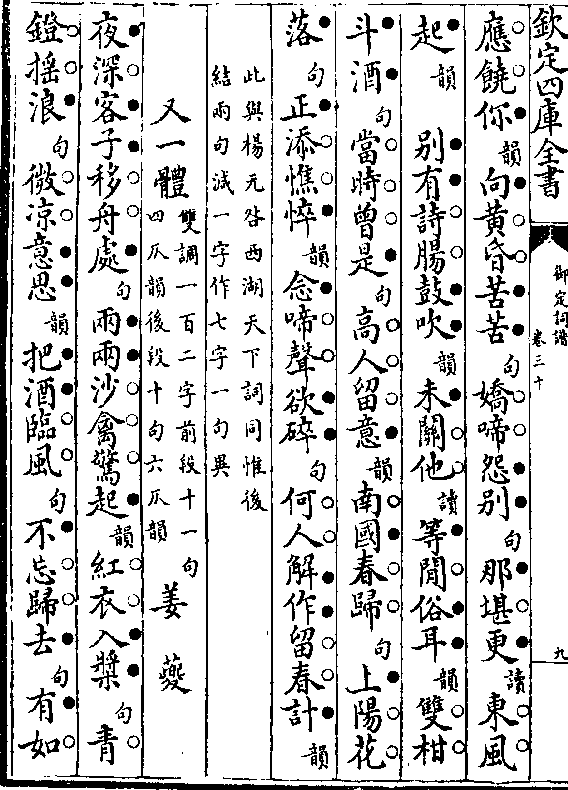 欽定四庫全書
御定詞譜
卷三十
九
應饒你韻向黃昏苦苦句嬌啼怨別句那堪更讀東風
起韻別有詩腸鼓吹韻未關他讀等閒俗耳韻雙柑
斗酒句當時曾是句高人留意韻南國春歸句上陽花
落句正添憔悴韻念啼聲欲碎句何人解作留春計韻
此與楊元咎西湖天下詞同惟後
結兩句減一字作七字一句異
又一體
雙調一百二字前段十一句
四仄韻後段十句六仄韻
姜夔
夜深客子移舟處句兩兩沙禽驚起韻紅衣入槳句青
鐙搖浪句微涼意思韻把酒臨風句不忘歸去句有如